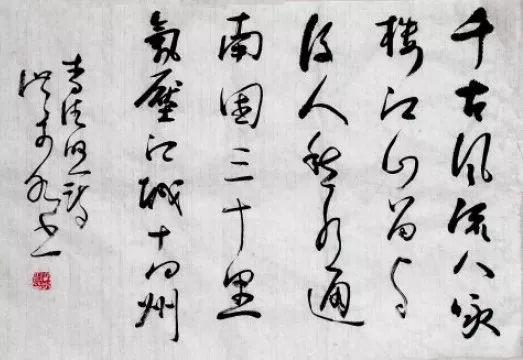 千古风流八咏
楼江山留与
后人愁水通
南国三十里
氣壓江城十四州
李清照诗
书